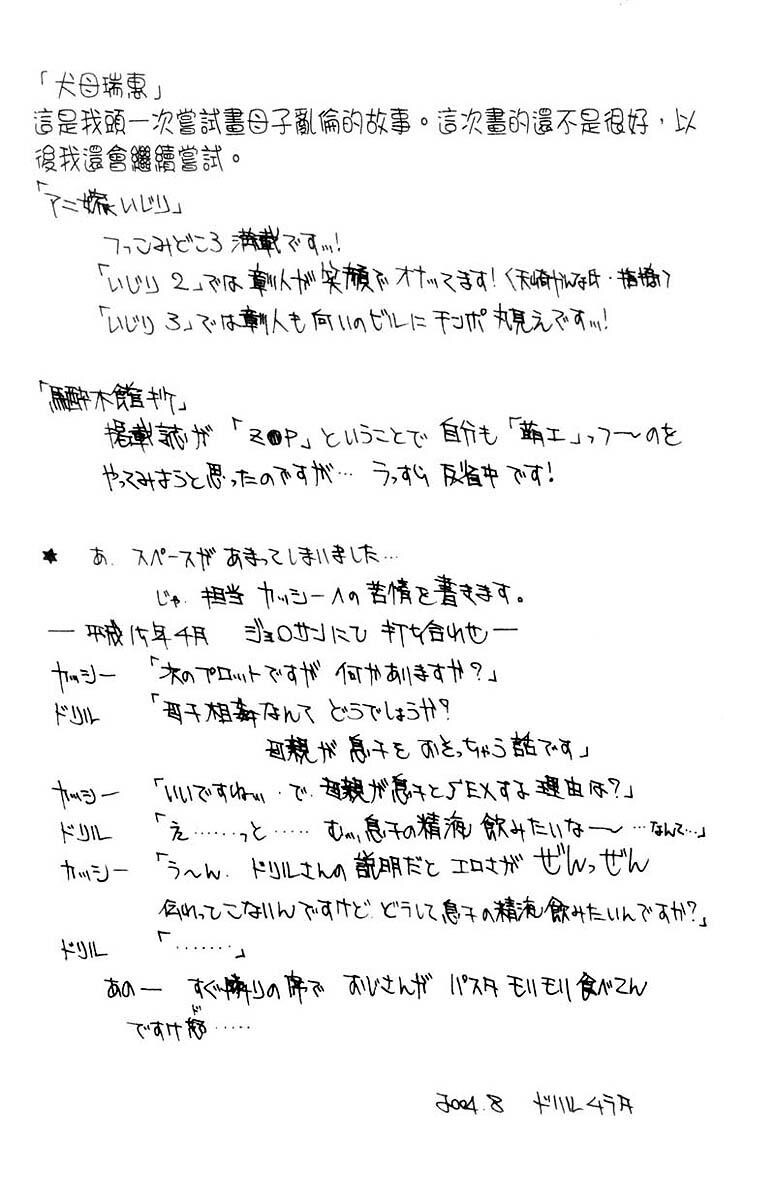 「犬母瑞惠」
這是我頭一次嘗試畫母子亂倫的故事。這次畫的還不是很好，以
後我還會繼續嘗試。
「アニ嫁いじり」
つっこみどころ満載ですッ!
「いじり 2」では彰人が笑顔でオナッてます!
「いじり 3」では彰人も向いのビルにチンポ丸見えですッ!
「馬酔木館
掲載誌が「Z●P」ということで自分も「萌エ」っつ〜のを
やってみようと思ったのですが… うっすら反省中です!
★ あ. スペースがあまってしまいました…
じゃ. 担当カッシーへの苦情を書きます。
― 平成15年4月 ジョ○サンにて 打ち合わせ ―
カッシー 「次のプロットですが 何かありますか?」
ドリル 「母子相姦なんて どうでしょうか?
母親が息子を おそっちゃう話です」
カッシー 「いいですねッ・で. 母親が息子とSEXする理由は?」
ドリル 「え……っと…… むッ, 息子の精液飲みたいな〜 …なんて…」
カッシー 「う〜ん. ドリルさんの説明だと エロさが ぜんっぜん
伝わってこないんですけど. どうして息子の精液飲みたいんですか?」
ドリル 「.......」
あの― すぐ隣りの席で おじさんが パスタ モリモリ食べてん
ですけど……
2004.8 ドリルムラタ